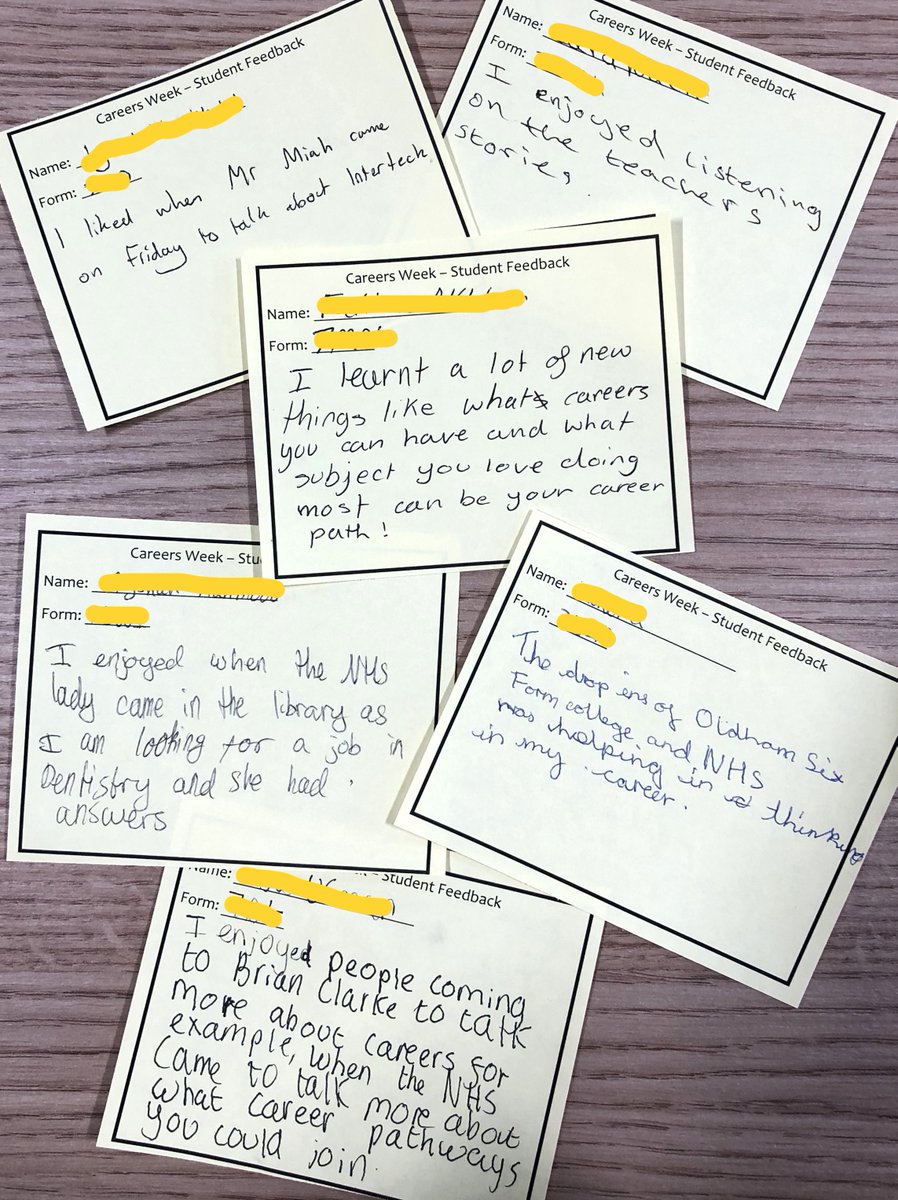 Careers Week – Student Feedback
Name:
Form:
I liked when Mr Miah came
on Friday to talk about Interteck
Careers Week – Student Feedback
Name:
Form:
I enjoyed listening
on the teachers
stories
Careers Week – Student Feedback
Name:
Form:
I learnt a lot of new
things like what careers
you can have and what
subject you love doing
most can be your career
path!
Careers Week – Stu
Name:
Form:
I enjoyed when the NHS
lady came in the library as
I am looking for a job in
Dentistry and she had
answers
Careers Week – Student Feedback
Name:
Form:
The drop ins of Oldham Six
Form college and NHS
was helping in thinking
in my career.
Student Feedback
Name:
Form:
I enjoyed people coming
to Brian Clarke to talk
more about careers for
example, when the NHS
came to talk more about
what career pathways
you could join.